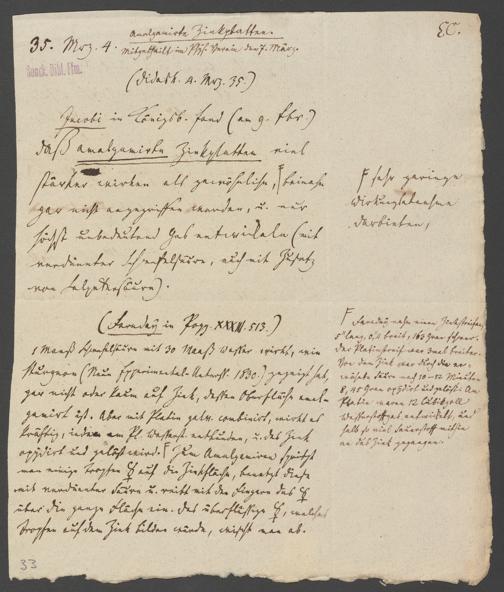 Amalgamirte Zinkplatten.
35. Mrz. 4. Mitgetheilt im Phys. Verein den 7. März.
EC.
Senck. Bibl. Ffm.
(Didask. 4. Mrz. 35.)
Jacobi in Königsb. fand (am 9. Fbr.)
daß amalgamirte Zinkplatten viel
stärker wirken als gewöhnliche, beinahe
gar nicht angegriffen werden, u. nur
höchst unbedeutend Gas entwickeln (mit
verdünnter Schwefelsäure, auch mit Zusatz
von Salpetersäure).
sehr geringe
Wirkungsabnahme
darbieten,
(Faraday in Pogg. XXXIII. 513.)
1 Maaß Schwefelsäure mit 30 Maaß Wasser wirkt, wie
Sturgeon (Neue Experimental 1830.) gezeigt hat,
gar nicht oder kaum auf Zink, dessen Oberfläche amal-
gamirt ist. Aber mit Platin galv. combinirt, wirkt es
kräftig, indem am Pl. Wasserst. entbunden, u. das Zink
oxydirt und gelöst wird. Zum Amalgamiren spritzt
man einige Tropfen ☿ auf die Zinkfläche, benetzt diese
mit verdünnter Säure u. reibt mit den Fingern das ☿
über die ganze Fläche ein. Das überflüssige ☿, welches
Tropfen auf dem Zink bilden würde, wischt man ab.
Faraday nahm einen Zinkstreifen,
5" lang, 0,5 breit, 163 Gran schwer.
der Platinstreif war 3mal breiter.
Von dem Zink war Nach der
Säure nach 10-12 Minuten
8,45 Gran oxydirt und gelöst. Am
Platin waren 12 Cubikzoll
Wasserstoffgas entwickelt, und
halb so viel Sauerstoff mithin
an das Zink gegangen.
33